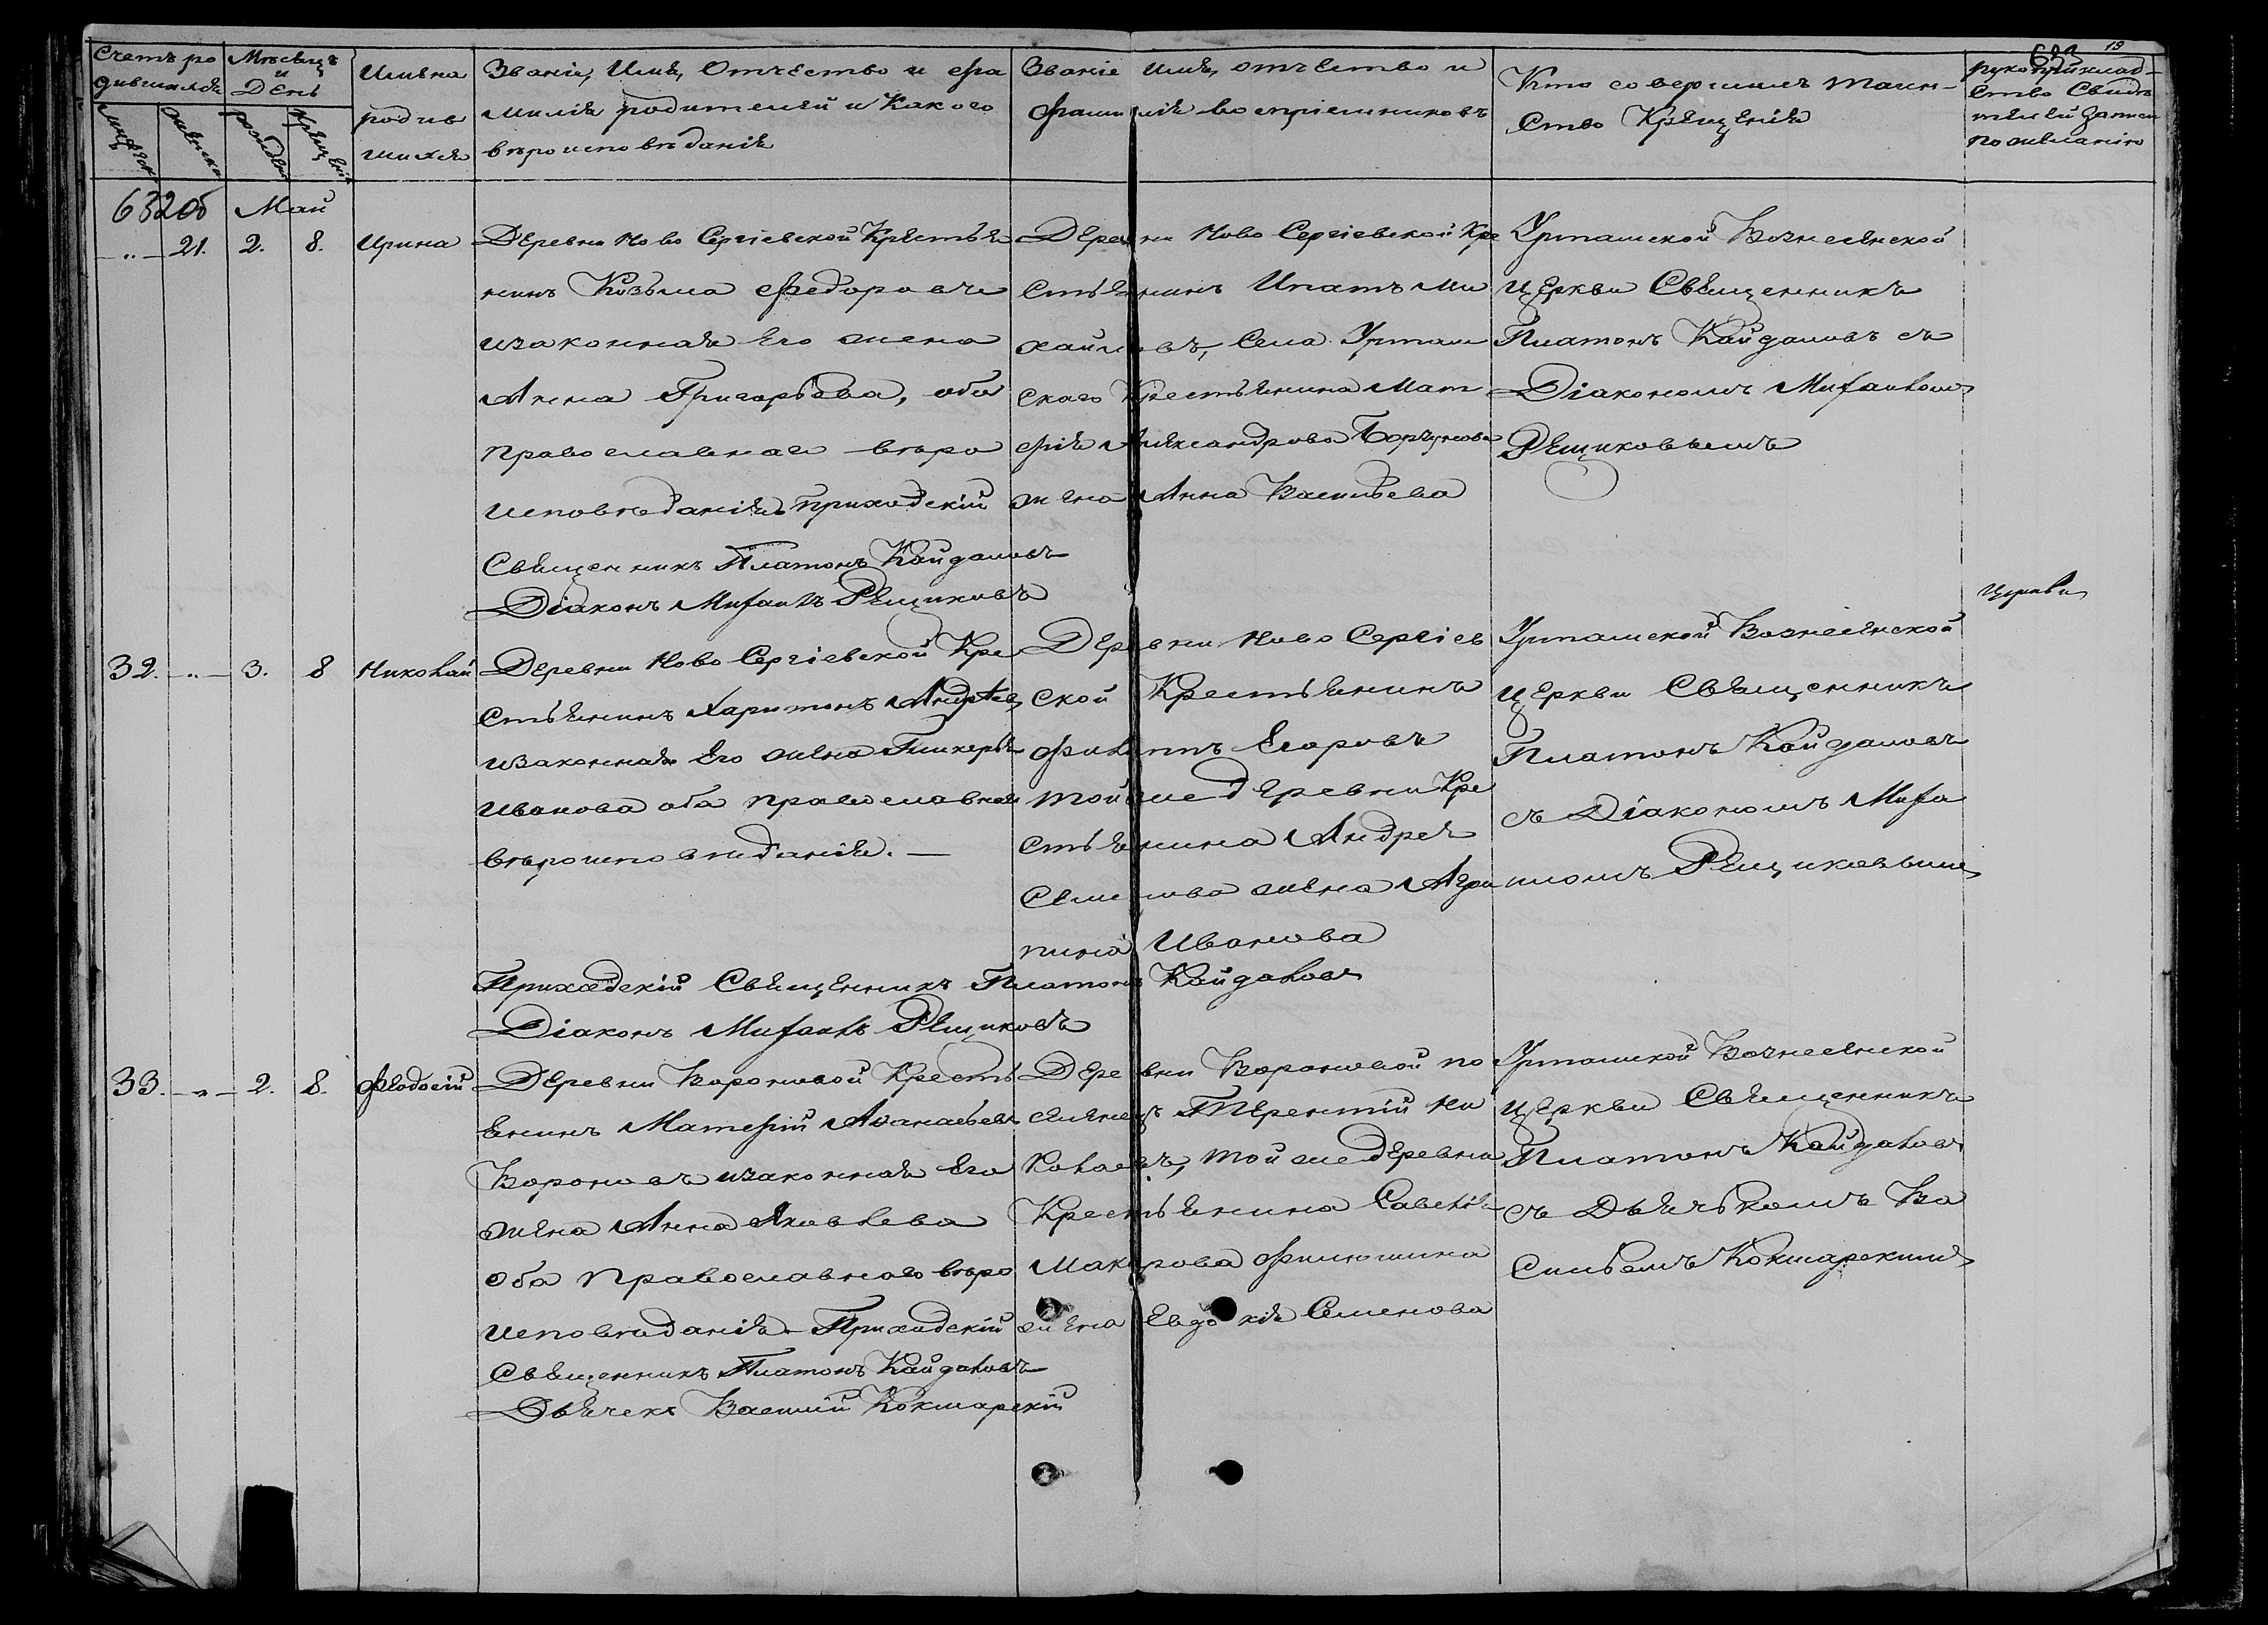 Счетъ ро
дившихся
Мѣсяцъ
и
День
Имена
родив
шихся
Званіе, Имя, Отчество и фа
милія родителей и Какого
вѣроисповѣданія
Званіе имя, отчество и
фамилія воспріемниковъ
Кто совершилъ таин-
ство Крещенія
19
рукоприклад-
ство Свидѣ
телей записи
по желанію
рожден
крещенія
632об Май
-"- 21. 2. 8. Ирина
Деревни Ново Сергіевской Крестья
нинъ Козьма Федоровъ
изаконная Его жена
Анна Григорьева, оба
православнаго вѣро
исповѣданія приходскій
Священникъ Платонъ Кайдаловъ
Діаконъ Михаилъ Рещиковъ
Деревни Ново Сергіевской Кре
стьянинъ Ипатъ Ми
хайловъ, Села Урташ
скаго Крестьянина Мат
фія Александрова
жена Анна Васильева
Урташской Вознесенской
Церкви Священникъ
Платонъ Кайдаловъ съ
Діакономъ Михаиломъ
Рещиковымъ
Церкви
32. -"- 3. 8 Николай
Деревни Ново Сергіевской Кре
стьянинъ Харитонъ Андреевъ,
изаконная Его жена Гликерья
Иванова оба православнаго
вѣроисповѣданія. —
Деревни Ново Сергіев
ской Крестьянинъ
Филатъ Егоровъ
той же деревни Кре
стьянина Андрея
Семенова жена Агри
пина Иванова
Урташской Вознесенской
Церкви Священникъ
Платонъ Кайдаловъ
съ Діакономъ Миха
иломъ Рещиковымъ
Приходскій Священникъ Платонъ Кайдаловъ
Діаконъ Михаилъ Рещиковъ
33. -"- 2. 8. Феодосій
Деревни Вороновой Кресть
янинъ Матефій Афанасьевъ
Вороновъ изаконная Его
жена Анна Яковлева
оба Православнаго вѣро
исповѣданія. Приходскій
Священникъ Платонъ Кайдаловъ
Дьячекъ Василій Кокшарскій
Деревни Вороновой по
селенецъ Терентій Ни
колаевъ, той же деревни
Крестьянина Савелія
Макарова Филюшина
жена Евдокія Семенова
Урташкой Вознесенской
Церкви Священникъ
Платонъ Кайдаловъ
съ Дьячькомъ Ва
сильемъ Кокшарскимъ